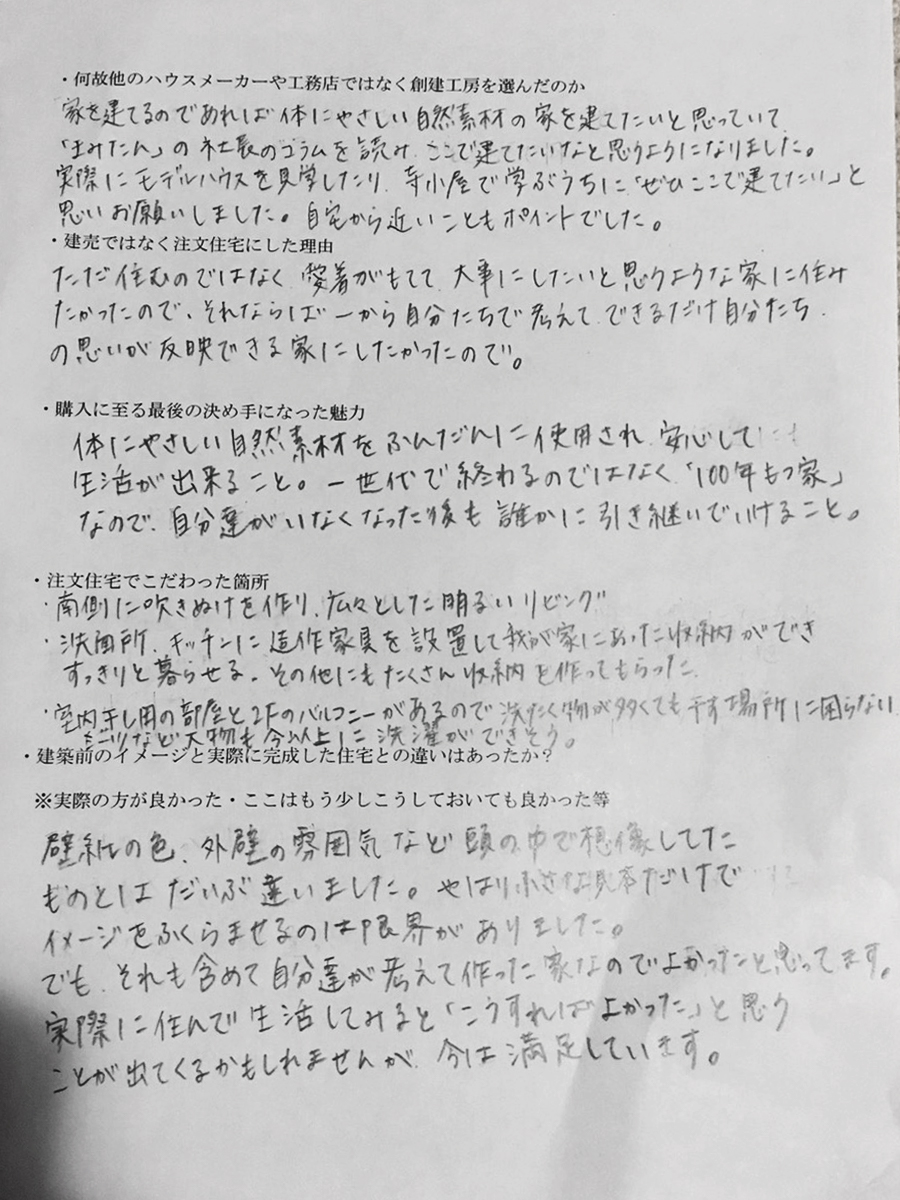 ・何故他のハウスメーカーや工務店ではなく創建工房を選んだのか
家を建てるのであれば体にやさしい自然素材の家を建てたいと思っていて
「まみたん」の社長のコラムを読み、ここで建てたいなと思うようになりました。
実際にモデルハウスを見学したり、寺小屋で学ぶうちに「ぜひここで建てたい」と
思いお願いしました。自宅から近いこともポイントでした。
・建売ではなく注文住宅にした理由
ただ住むのではなく、愛着がもてて、大事にしたいと思うような家に住み
たかったので、それならば一から自分たちで考えて、できるだけ自分たち
の思いが反映できる家にしたかったので。
・購入に至る最後の決め手になった魅力
体にやさしい自然素材をふんだんに使用され、安心して
生活が出来ること。一世代で終わるのではなく「100年もつ家」
なので、自分達がいなくなった後も誰かに引き継いでいけること。
・注文住宅でこだわった箇所
・南側に吹きぬけを作り、広々とした明るいリビング
・洗面所、キッチンに造作家具を設置して我が家にあった収納ができ
すっきりと暮らせる。その他にもたくさん収納を作ってもらった。
・室内干し用の部屋と2Fのバルコニーがあるので洗たく物が多くても干す場所に困らない
など大物も今以上に洗濯ができそう。
・建築前のイメージと実際に完成した住宅との違いはあったか？
※実際の方が良かった・ここはもう少しこうしておいても良かった等
壁紙の色、外壁の雰囲気など頭の中で想像してた
ものとはだいぶ違いました。やはり小さな見本だけで
イメージをふくらませるのは限界がありました。
でも、それも含めて自分達が考えて作った家なのでよかったと思ってます。
実際に住んで生活してみると「こうすればよかった」と思う
ことが出てくるかもしれませんが、今は満足しています。